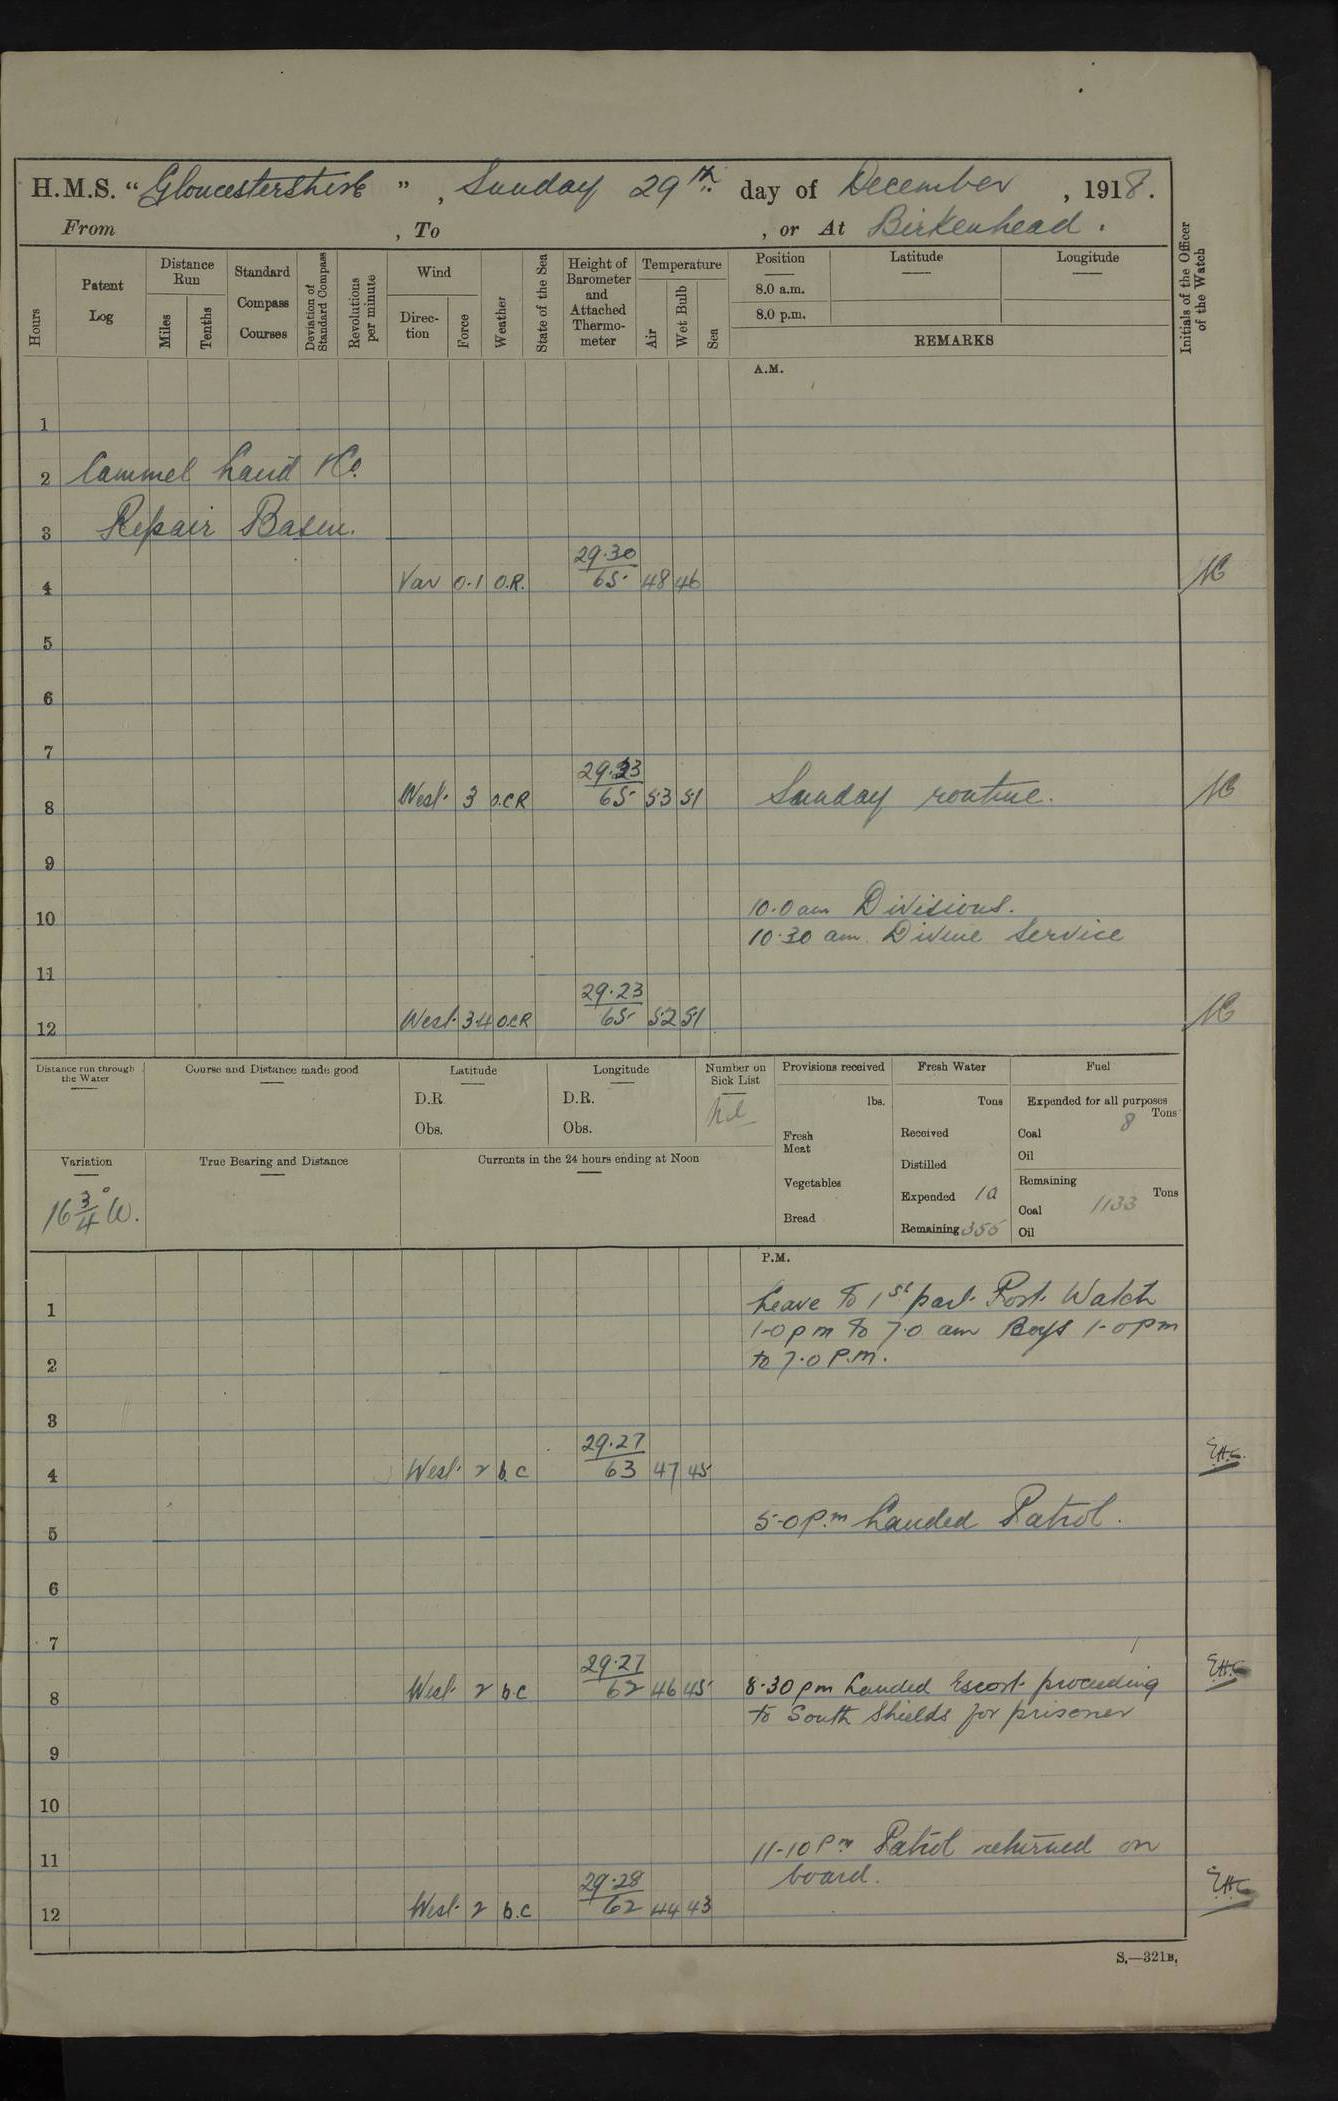 H.M.S. "Gloucestershire", Sunday 29th day of December, 1918.
From , To , or At Birkenhead.
Hours
Patent Log
Distance Run
Miles
Tenths
Standard Compass Courses
Deviation of Standard Compass
Revolutions per minute
Wind
Direction
Force
Weather
State of the Sea
Height of Barometer and Attached Thermometer
Temperature
Air
Wet Bulb
Sea
Position
8.0 a.m.
8.0 p.m.
Latitude
Longitude
REMARKS
Initials of the Officer of the Watch
A.M.
1
2 Cammel Laird & Co.
3 Repair Basin.
4 Var 0.1 O.R. 29.30 65 48 46
5
6
7
8 West 3 O.C.R 29.23 65 53 51 Sunday routine.
9
10 10.0 am Divisions.
10.30 am Divine Service
11
12 West 3.4 O.C.R 29.23 65 52 51
Distance run through the Water
Course and Distance made good
Latitude
D.R
Obs.
Longitude
D.R.
Obs.
Number on Sick List
Nil
Provisions received
lbs.
Fresh Meat
Vegetables
Bread
Fresh Water
Tons
Received
Distilled
Expended
Remaining 355
Fuel
Expended for all purposes
Tons
Coal 8
Oil
Remaining
Tons
Coal 1133
Oil
Variation
16 3/4° W.
True Bearing and Distance
Currents in the 24 hours ending at Noon
P.M.
1 Leave to 1st part Port Watch
1-0 pm to 7.0 am Boys 1-0 pm
2 to 7.0 P.M.
3
4 West 2 b c 29.27 63 47 45 E.H.C.
5 5-0 P.m Landed Patrol.
6
7
8 West 2 b c 29.27 62 46 45 8.30 pm Landed Escort proceeding E.H.C
to South Shields for prisoner
9
10
11 11-10 Pm Patrol returned on
board.
12 West 2 b.c 29.28 62 44 43 E.H.C
S.—321B.